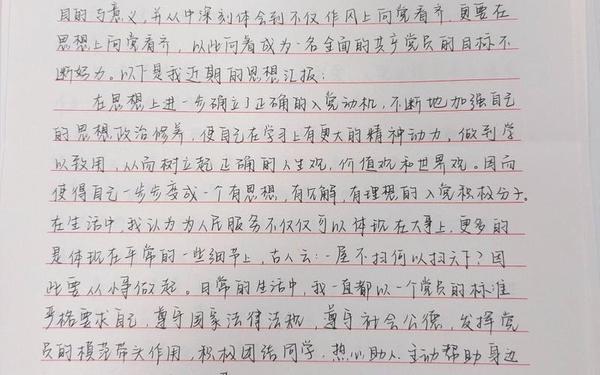 目的与意义,并从中深刻体会到不仅作风上向党看齐,更要在
思想上向党看齐,以此向着成为一名全面的共产党员的目标不
断努力。以下是我近期的思想汇报:
在思想上进一步确立了正确的入党动机,不断地加强自己
的思想政治修养,使自己在学习上有更大的精神动力。做到学
以致用,从而树立起正确的人生观,价值观和世界观。因而
使得自己一步步变成一个有思想,有见解,有理想的入党积极分子。
在生活中,我认为为人民服务不仅仅可以体现在大事上,更多的
是体现在平常的一些细节上,古人云:一屋不扫何以扫天下?因
此要从小事做起。日常的生活中,我一直都以一个党员的标准
严格要求自己,遵守国家法律法规,遵守社会公德,发挥党
员的模范带头作用,积极团结同学,热心助人.主动帮助身边